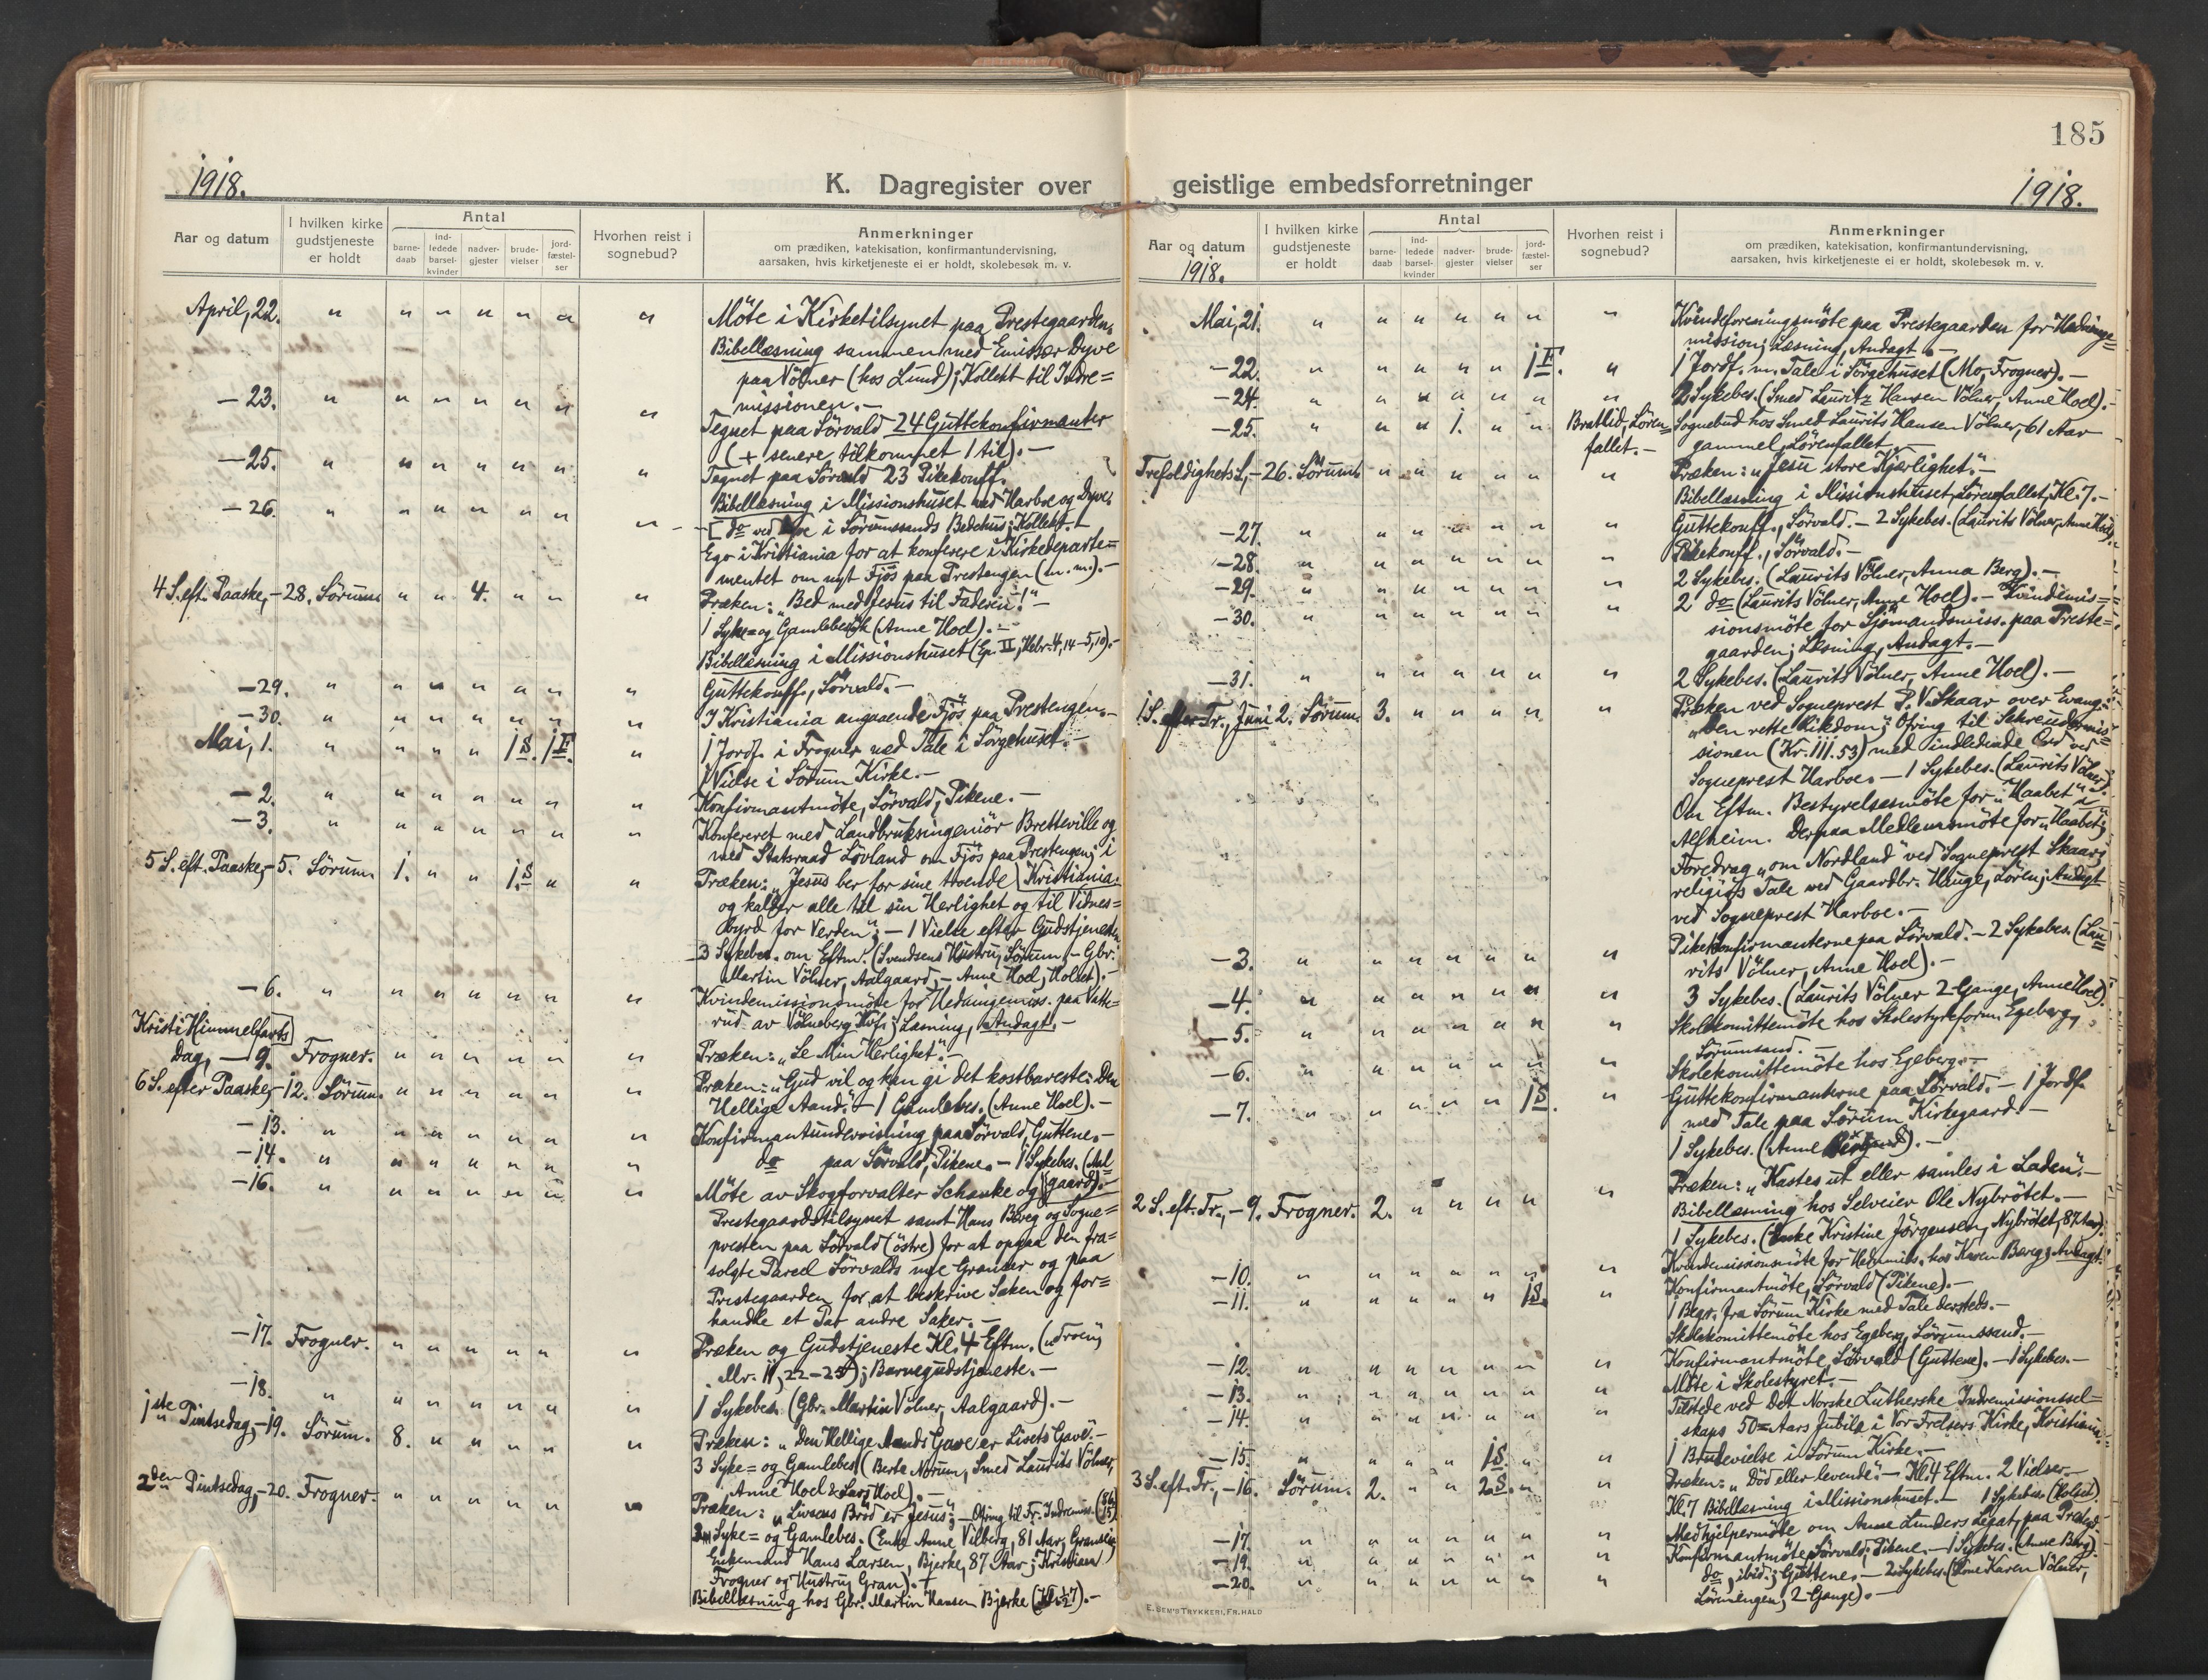 185
1918.
K. Dagregister over
geistlige embedsforretninger
1918.
Aar og datum
I hvilken kirke gudstjeneste er holdt
Antal
barne-daab
ind-ledede barsel-kvinder
nadver-gjester
brude-vielser
jord-fæstel-ser
Hvorhen reist i sognebud?
Anmerkninger
om prædiken, katekisation, konfirmantundervisning,
aarsaken, hvis kirketjeneste ei er holdt, skolebesøk m. v.
April, 22. " " " " " " " Möte i Kirketilsynet paa Prestegaarden.
Bibellæsning sammen med Emissær Dyve
paa Völner (hos Lund); Kollekt til Indre=
missionen. —
— 23. " " " " " " " Tegnet paa Sörvald 24 Guttekonfirmanter
(+ senere tilkommet 1 til). —
— 25. " " " " " " " Tegnet paa Sörvald 23 Pikekonff.
Bibellæsning i Missionshuset ved Harboe og Dyve.
— 26. " " " " " " " [do ved Dyve i Sörumsands Bedehus; Kollekt.
Ego i Kristiania for at konferere i Kirkedeparte=
mentet om nyt Fjös paa Prestengen (m. m.). —
4 S. eft. Paaske, — 28. Sörum " " 4. " " " Præken: „Bed med Jesus til Faderen!" —
1 Syke= og Gamlebesök (Anne Hoel). —
Bibellæsning i Missionshuset (Ep. II, Hebr. 4, 14 — 5, 10). —
— 29. " " " " " " " Guttekonff., Sörvald. —
— 30. " " " " " " " I Kristiania angaaende Fjös paa Prestengen. —
Mai, 1. " " " " 1 S. 1 F. " 1 Jordf. i Frogner med Tale i Sörgehuset. —
1 Vielse i Sörum Kirke. —
— 2. " " " " " " " Konfirmantmöte, Sörvald, Pikene. —
— 3. " " " " " " " Konfereret med Landbruksingeniör Bretteville og
med Statsraad Lövland om Fjös paa Prestengen i
5 S. eft. Paaske, — 5. Sörum 1. " " 1. S " " Præken: „Jesus ber for sine troende [Kristiania.
og kalder alle til sin Herlighet og til Vidnes=
byrd for Verden"; — 1 Vielse efter Gudstjenesten
3 Sykebes. om Eftm. (Svendsens Hustru, Sörum, — Gbr.
Martin Völner, Aalgaard, — Anne Hoel, Holset). —
— 6. " " " " " " " Kvindemissionsmöte for Hedningemiss. paa Vatte=
rud av Völneberg Kvf.; Læsning, Andagt. —
Kristi Himmelfarts
Dag, — 9. Frogner. " " " " " " Præken: „Se Min Herlighet". —
6 S. efter Paaske, — 12. Sörum. " " " " " " Præken: „Gud vil og kan gi det kostbareste: Den
Hellige Aand." — 1 Gamlebes. (Anne Hoel). —
— 13. " " " " " " " Konfirmantundervisning paa Sörvald, Guttene. —
— 14. " " " " " " " do paa Sörvald, Pikene. — 1 Sykebes. (Aal=
— 16. " " " " " " " Möte av Skogforvalter Schanke og [gaard). —
Prestegaardstilsynet samt Hans Berg og Sogne=
presten paa Sörvald (östre) for at opgaa den fra=
solgte Parcel Sörvalds nye Grænser og paa
Prestegaarden for at beskrive Saken og for=
handle et Par andre Saker. —
— 17. Frogner. " " " " " " Præken og Gudstjeneste Kl. 4 Eftm. („Troen",
Mr. 11, 22—25); Barnegudstjeneste. —
— 18. " " " " " " " 1 Sykebes. (Gbr. Martin Völner, Aalgaard). —
1ste Pintsedag, — 19. Sörum. 8. " " " " " Præken: „Den Hellige Aands Gave er Livets Gave". —
3 Syke= og Gamlebes. (Berte Norum, Smed Laurits Völner,
Anne Hoel & Lars Hoel). —
2den Pintsedag, — 20. Frogner. " " " " " " Præken: „Livsens Bröd er Jesus"; — Ofring til Fr. Indremiss.
Syke= og Gamlebes. (Enke Anne Vilberg, 81 Aar,
Enkemand Hans Larsen, Bjerke, 87 Aar; Kristian
Frogner og Hustru, Gran). +
Bibellæsning hos Gbr. Martin Hansen Bjerke (Kl. 7). —
Aar og datum
1918.
I hvilken kirke gudstjeneste er holdt
Antal
barne-daab
ind-ledede barsel-kvinder
nadver-gjester
brude-vielser
jord-fæstel-ser
Hvorhen reist i sognebud?
Anmerkninger
om prædiken, katekisation, konfirmantundervisning,
aarsaken, hvis kirketjeneste ei er holdt, skolebesøk m. v.
Mai, 21. " " " " " " " Kvindeforeningsmöte paa Prestegaarden for Hedninge=
mission; Læsning, Andagt. —
— 22. " " " " " 1 F. " 1 Jordf. m. Tale i Sörgehuset (Mo, Frogner). —
— 24. " " " " " " " 2 Sykebes. (Smed Lauritz Hansen Völner, Anne Hoel). —
— 25. " " " 1. " " Bratlid, Lören=
fallet. — Sognebud hos Smed Laurits Hansen Völner, 61 Aar
gammel, Lörenfallet. —
Trefoldighets S., — 26. Sörum. " " " " " " Præken: „Jesu store Kjærlighet". —
Bibellæsning i Missionshuset, Lörenfallet, Kl. 7. —
— 27. " " " " " " " Guttekonff., Sörvald. — 2 Sykebes. (Laurits Völner, Anne Hoel).
— 28. " " " " " " " Pikekonff., Sörvald. —
— 29. " " " " " " " 2 Sykebes. (Laurits Völner, Anna Berg). —
— 30. " " " " " " " 2 do (Laurits Völner, Anne Hoel). — Kvindemis=
sionsmöte for Sjömandsmiss. paa Preste=
gaarden; Læsning, Andagt. —
— 31. " " " " " " " 2 Sykebes. (Laurits Völner, Anne Hoel). —
1 S. efter Tr., Juni 2. Sörum. 3. " " " " " Præken ved Sogneprest P. V. Skaar over Evang.:
„Den rette Rikdom"; Ofring til Schreudermis=
sionen (Kr. 111.53) med indledende Ord ved
Sogneprest Harboe. — 1 Sykebes. (Laurits Völner).
Om Eftm. Bestyrelsesmöte for „Haabet" i
Alfheim. Derpaa Medlemsmöte for „Haabet";
Foredrag „om Nordland" ved Sogneprest Skaar;
religiös Tale ved Gaardbr. Hauge, Lören; Andagt
ved Sogneprest Harboe. —
— 3. " " " " " " " Pikekonfirmanterne paa Sörvald. — 2 Sykebes. (Lau=
rits Völner, Anne Hoel). —
— 4. " " " " " " " 3 Sykebes. (Laurits Völner 2 Gange, Anne Hoel).
— 5. " " " " " " " Skolekomittemöte hos Skolestyreform. Egeberg,
Sörumsand. —
— 6. " " " " " " " Skolekomittemöte hos Egeberg. —
— 7. " " " " " 1 S. " Guttekonfirmanterne paa Sörvald. — 1 Jordf.
med Tale paa Sörum Kirkegaard. —
1 Sykebes. (Anne). —
2 S. eft. Tr., — 9. Frogner. 2. " " " " " Præken: „Kastes ut eller samles i Laden". —
Bibellæsning hos Selveier Ole Nybrötet. —
1 Sykebes. (Enke Kristine Jörgensen, Nybrötet, 87 Aar).
— 10. " " " " " " " Kvindemissionsmöte for Hedmiss. hos Karen Berg; Andagt.
Konfirmantmöte, Sörvald (Pikene). —
— 11. " " " " " 1 S. " 1 Begr. fra Sörum Kirke med Tale dersteds. —
Skolekomittemöte hos Egeberg, Sörumssand. —
— 12. " " " " " " " Konfirmantmöte, Sörvald (Guttene). — 1 Sykebes. —
— 13. " " " " " " " Möte i Skolestyret. —
— 14. " " " " " " " Tilstede ved Det Norske Lutherske Indremissionssel=
skaps 50=Aars Jubilæ i Vor Frelsers Kirke, Kristiania.
— 15. " " " " 1 S. " " 1 Brudevielse i Sörum Kirke. —
3 S. eft. Tr., — 16. Sörum. 2. " " 2 S. " " Præken: „Död eller levende". — Kl. 4 Eftm. 2 Vielser. —
Kl. 7 Bibellæsning i Missionshuset. — 1 Sykebes. (Holset).
— 17. " " " " " " " Medhjelpermöte om Anne Lunders Legat, paa Prestegd.
— 19. " " " " " " " Konfirmantmöte, Sörvald, Pikene. — 1 Sykebes. (Anne Berg).
— 20. " " " " " " " do, ibid.; Guttene. — 2 Sykebes. (Karen Völner,
Lörenengen, 2 Gange). —
E. SEM'S TRYKKERI, FR.HALD